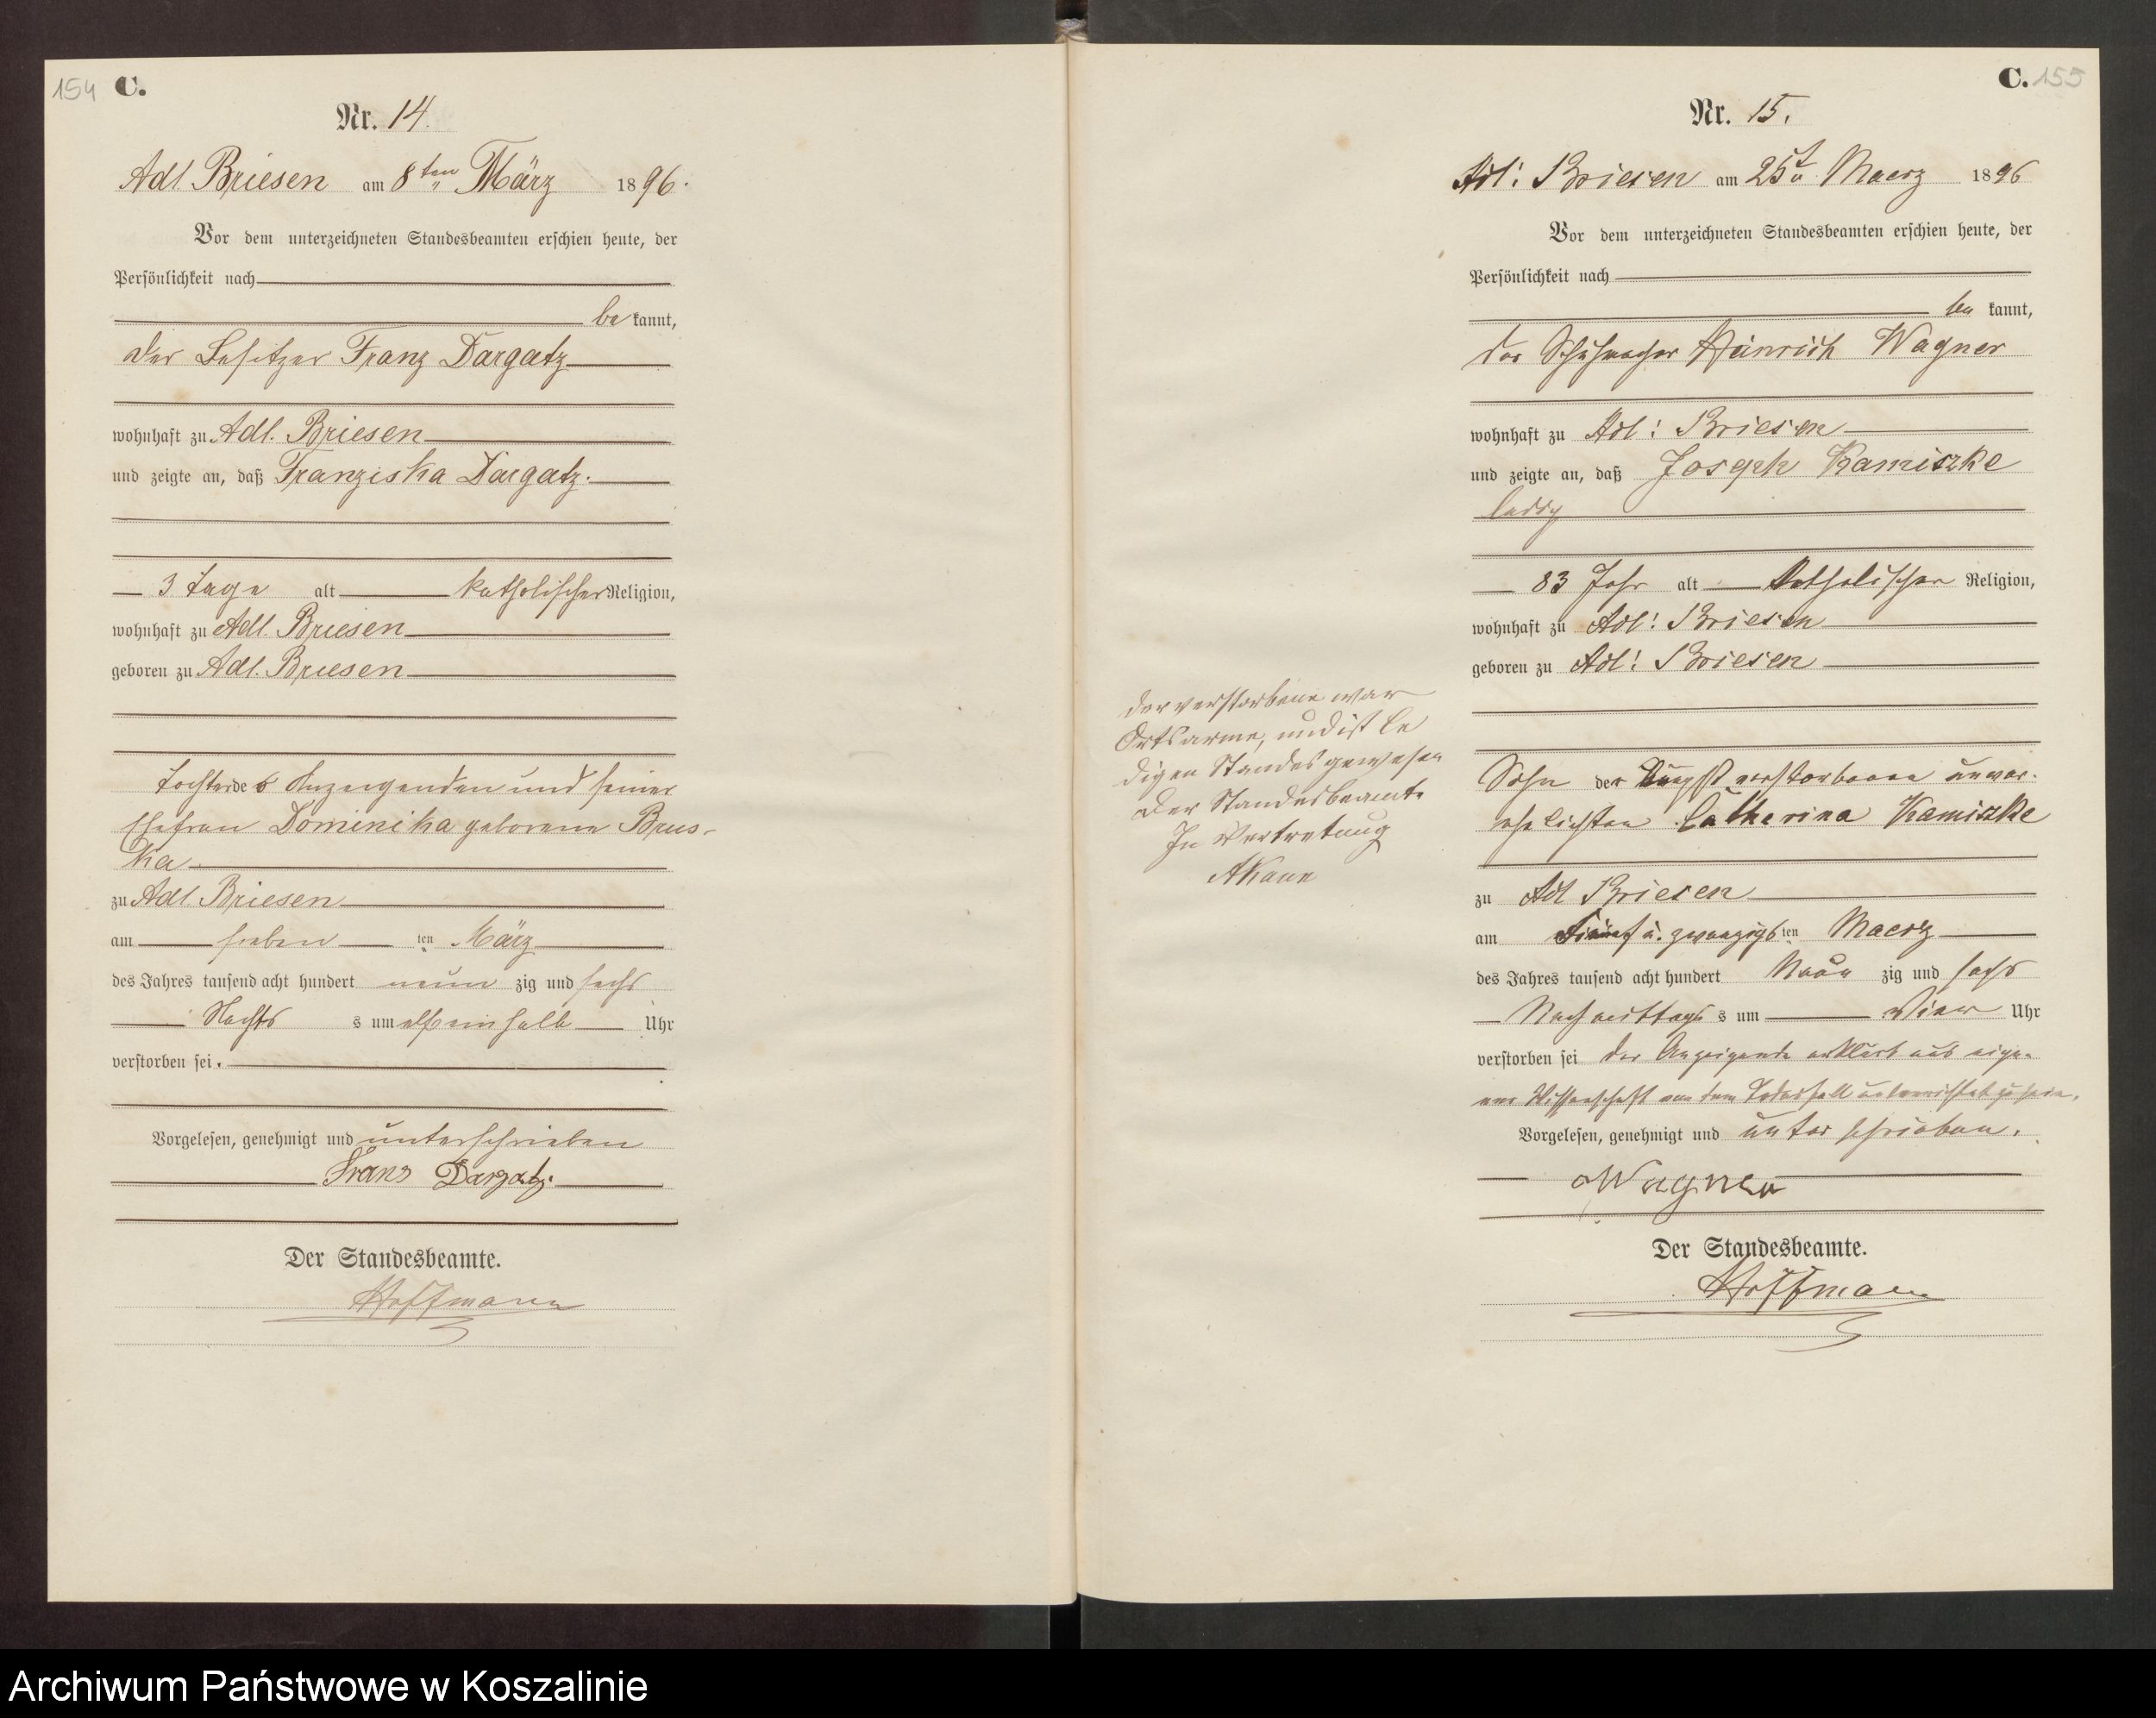 154 C.
Nr. 14.
Adl. Briesen am 8ten März 1896.
Vor dem unterzeichneten Standesbeamten erschien heute, der
Persönlichkeit nach
be kannt,
der Besitzer Franz Dargatz
wohnhaft zu Adl. Briesen
und zeigte an, daß Franziska Dargatz.
3 Tage alt katholischer Religion,
wohnhaft zu Adl. Briesen
geboren zu Adl. Briesen
Tochter des Anzeigenden und seiner
Ehefrau Dominika geborene Brus-
ka
zu Adl. Briesen
am sieben ten März
des Jahres tausend acht hundert neun zig und sechs
Nachts s um elfeinhalb Uhr
verstorben sei.
Vorgelesen, genehmigt und unterschrieben
Franz Dargatz.
Der Standesbeamte.
Hoffmann
C. 155
Nr. 15.
Adl: Briesen am 25t Maerz 1896
Vor dem unterzeichneten Standesbeamten erschien heute, der
Persönlichkeit nach
be kannt,
der Schuhmacher Heinrich Wagner
wohnhaft zu Adl: Briesen
und zeigte an, daß Joseph Kamiszke
ledig
83 Jahr alt Katholischer Religion,
wohnhaft zu Adl: Briesen
geboren zu Adl: Briesen
der verstorbene war
Ortsarme, und ist le
digen Standes gewesen
Der Standesbeamte
In Vertretung
Sohn der längst verstorbenen unver-
ehelichten Catherina Kamiszke
zu Adl Briesen
am Fünf u. zwanzigs ten Maerz
des Jahres tausend acht hundert Neun zig und sechs
Nachmittags s um Vier Uhr
verstorben sei der Anzeigende erklärt aus eige-
ner Wissenschaft von dem Todesfall unterrichtet zu sein.
Vorgelesen, genehmigt und unter schrieben.
Wagner
Der Standesbeamte.
Hoffmann
Archiwum Państwowe w Koszalinie